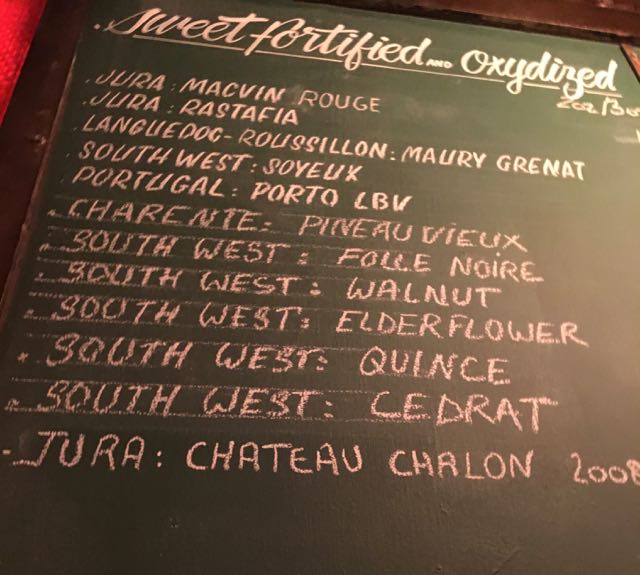 . Sweet fortified AND Oxydized
2oz/3oz
. JURA: MACVIN ROUGE
. JURA: RASTAFIA
. LANGUEDOC-ROUSSILLON: MAURY GRENAT
. SOUTHWEST: SOYEUX
. PORTUGAL: PORTO LBV
. CHARENTE: PINEAU VIEUX
. SOUTH WEST: FOLLE NOIRE
. SOUTH WEST: WALNUT
. SOUTH WEST: ELDERFLOWER
. SOUTH WEST: QUINCE
. SOUTH WEST: CEDRAT
- JURA: CHATEAU CHALON 2008